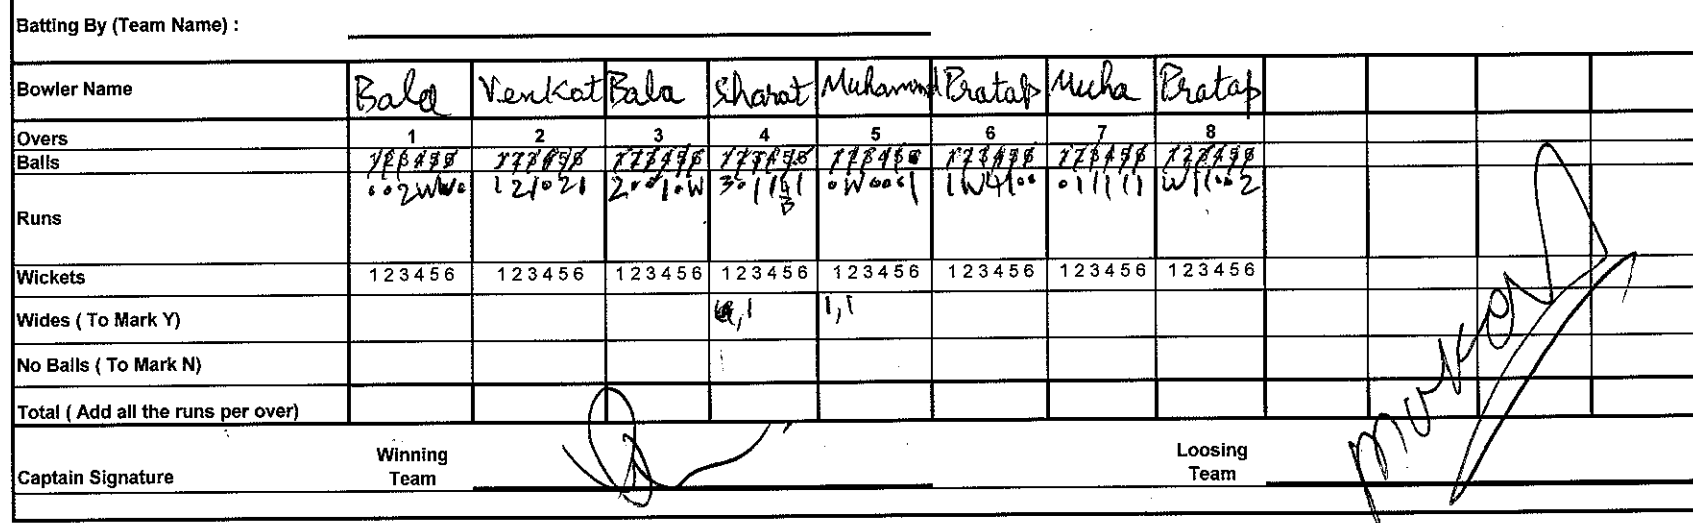 Batting By (Team Name) :
Bowler Name Bala Venkat Bala Sharat Muhammad Pratap Mucha Pratap
Overs 1 2 3 4 5 6 7 8
Balls 123456 123456 123456 123456 123456 123456 123456 123456
Runs ··2WW· 121·21 2··1·W 3·1141 ·W···1 1W41·· ·11111 W11··2
B
Wickets 1 2 3 4 5 6 1 2 3 4 5 6 1 2 3 4 5 6 1 2 3 4 5 6 1 2 3 4 5 6 1 2 3 4 5 6 1 2 3 4 5 6 1 2 3 4 5 6
Wides ( To Mark Y) ,1 1,1
No Balls ( To Mark N)
Total ( Add all the runs per over)
Captain Signature Winning Team Loosing Team